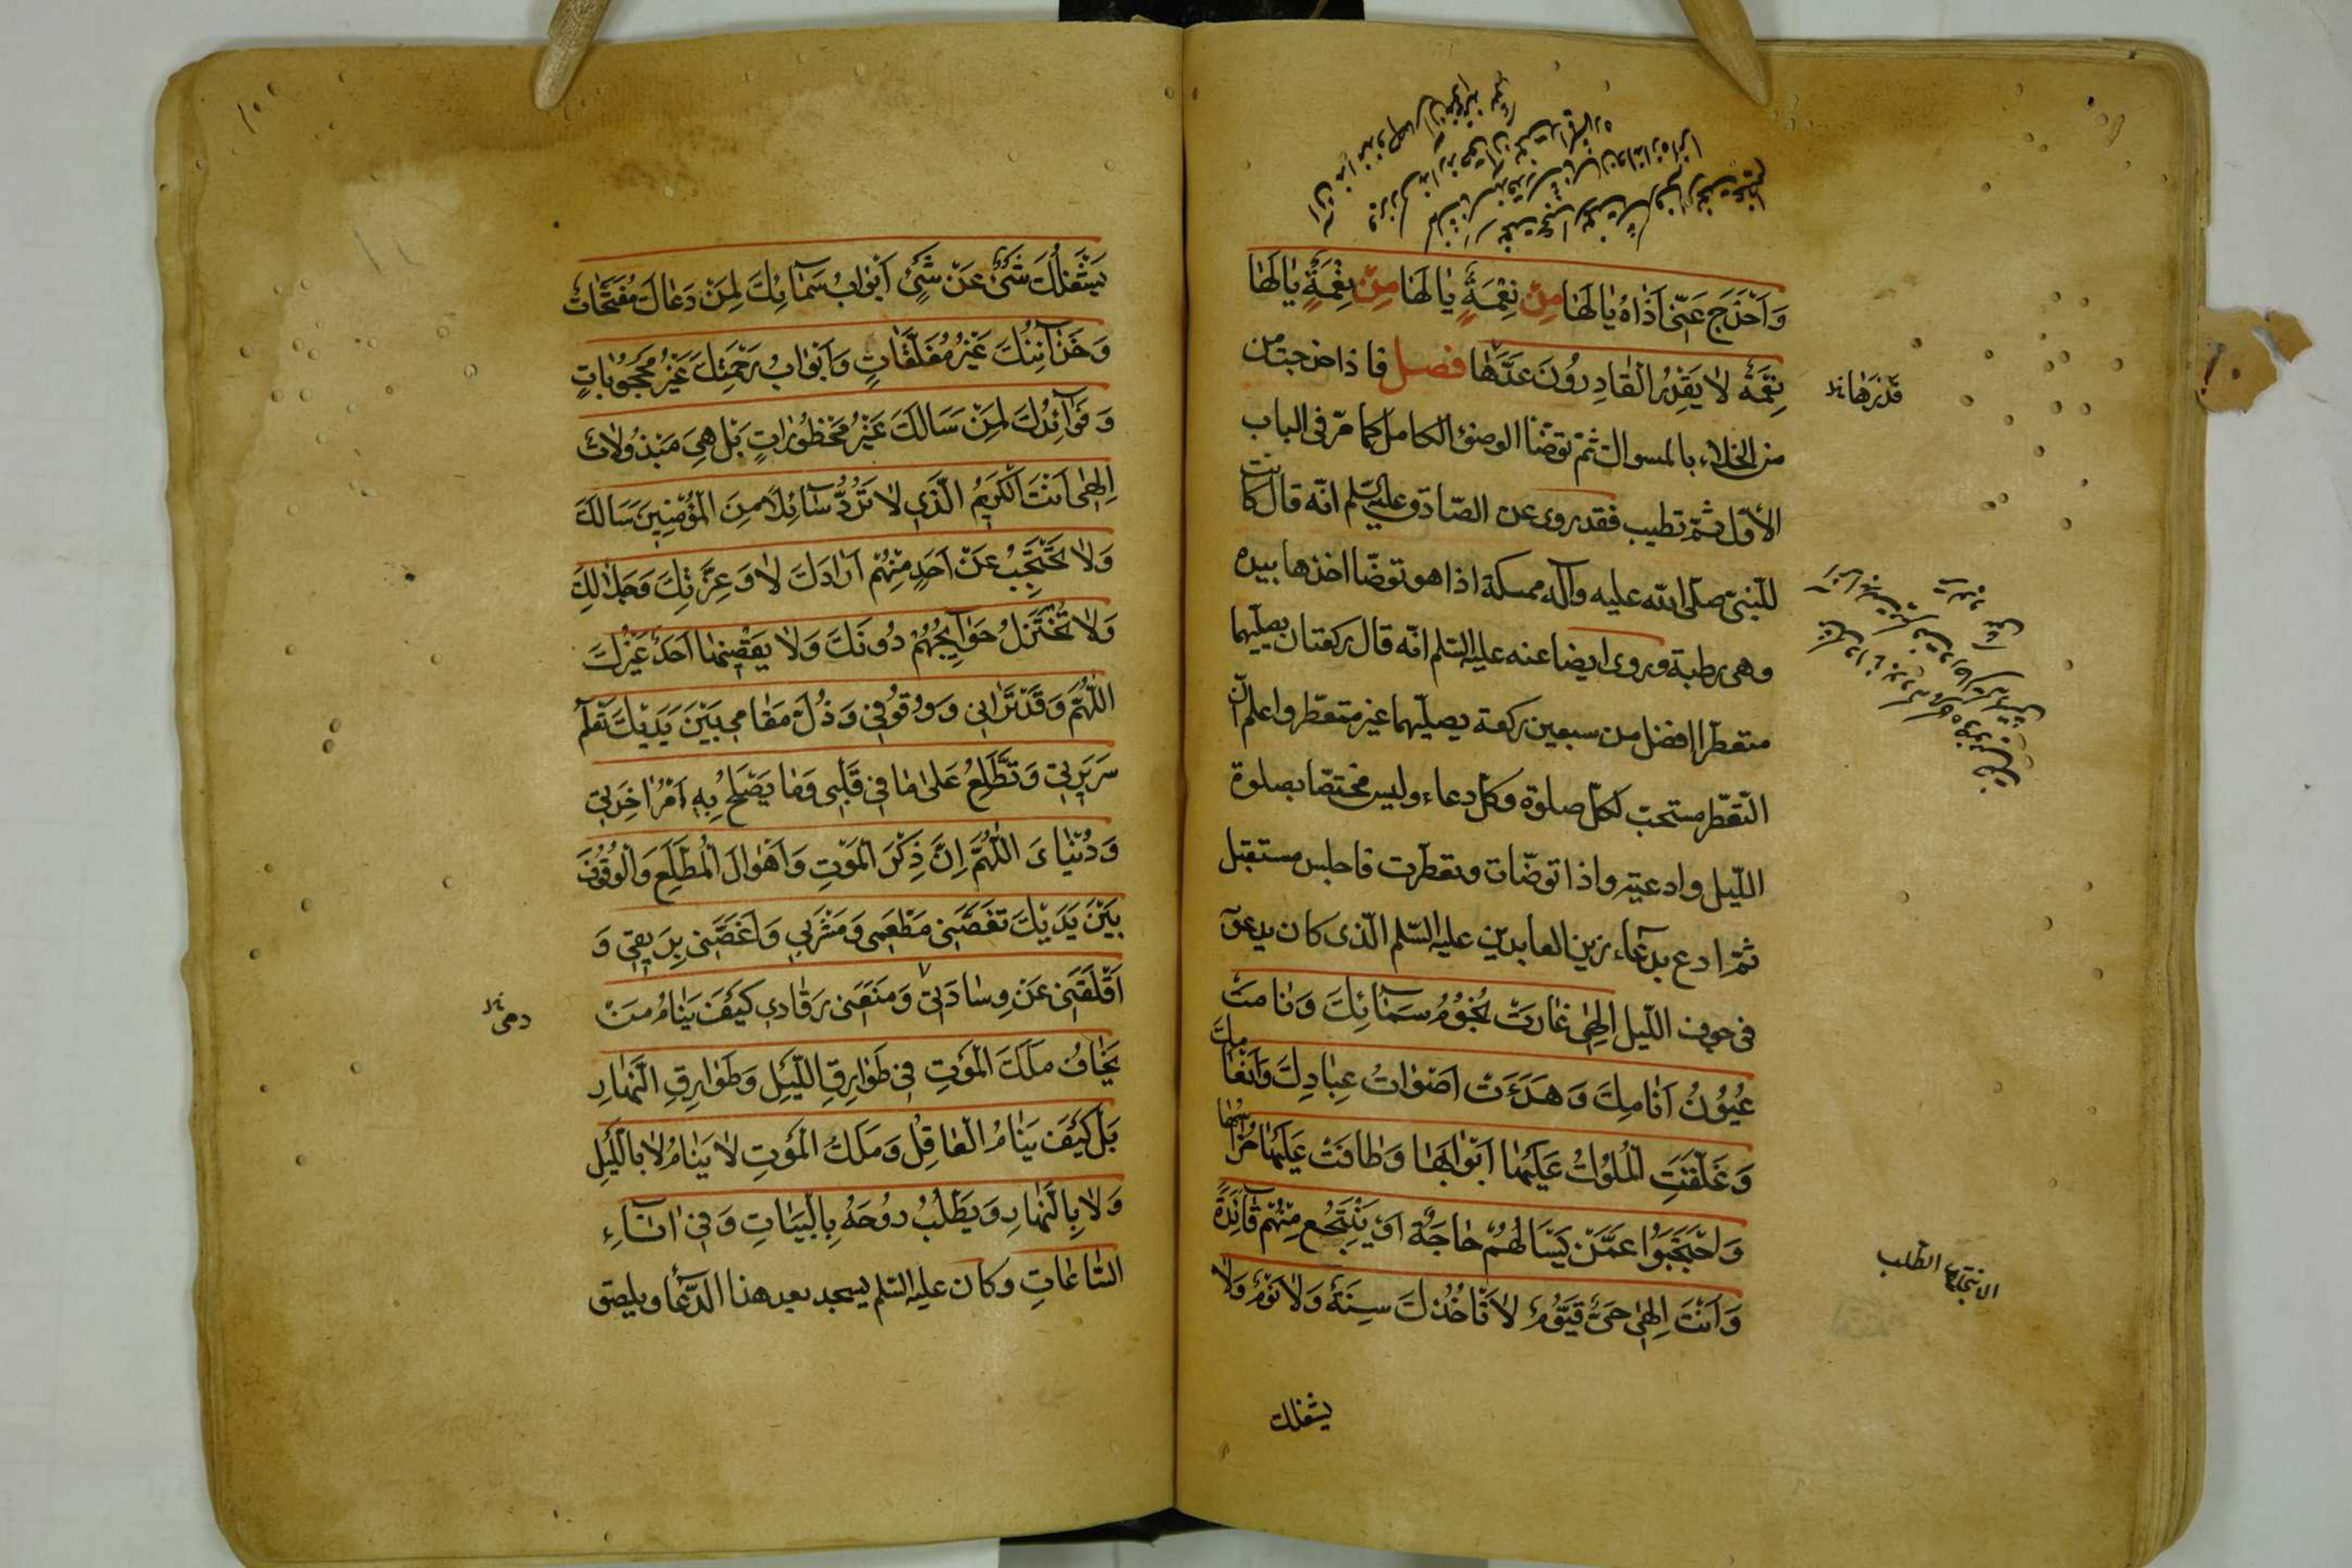 وَاَخْرَجَ عَنّى اَذٰاهُ يٰالَهٰا مِنْ نِعْمَةٍ يٰالَهٰا مِنْ نِعْمَةٍ يٰالَهٰا
نِعْمَةً لاٰ يَقْدِرُ الْقٰادِرُونَ عَدَّهٰا فصل فاذا خرجت من
قَدْرَهٰا
من الخلاء بالمسواك ثمّ توضّأ الوضوء الكامل كما مرّ فى الباب
الأوّل ثمّ تطيب فقد روى عن الصّادق عليه السّلم انّه قال كانت
للنّبىّ صلّى الله عليه وآله ممسكة اذا هو توضّأ اخذها بيده
وهى رطبة وروى ايضا عنه عليه السّلم انّه قال ركعتان يصلّيهما
متعطّرا افضل من سبعين ركعة يصلّيهما غير متعطّر واعلم انّ
التّعطّر مستحبّ لكلّ صلوة وكلّ دعاء وليس مختصّا بصلوة
اللّيل وادعيته واذا توضّأت وتعطّرت فاجلس مستقبل
ثمّ ادع بدعاء زين العابدين عليه السّلم الّذى كان يدعو
فى جوف اللّيل اِلٰهى غٰارَتْ نُجُوُمُ سَمٰآئِكَ وَنٰامَتْ
عُيُوُنُ اَنٰامِكَ وَهَدَءَتْ اَصْوٰاتُ عِبٰادِكَ وَاَنْعٰامِكَ
وَغَلَّقَتِ الْمُلُوُكُ عَلَيْهٰا اَبْوٰابَهٰا وَطٰافَتْ عَلَيْهٰا حُرّٰاسُهٰا
وَاحْتَجَبُوا عَمَّنْ يَسْئَالُهُمْ حٰاجَةً اَوْ يَنْتَجِعُ مِنْهُمْ فٰآئِدَةً
الانتجاع الطّلب
وَاَنْتَ اِلٰهى حَىٌّ قَيُّوُمٌ لاٰ تَأْخُذُكَ سِنَةٌ وَلاٰ نَوْمٌ وَلاٰ
يشغلك
يَشْغَلُكَ شَىْءٌ عَنْ شَىْءٍ اَبْوٰابُ سَمٰآئِكَ لِمَنْ دَعٰاكَ مُفَتَّحٰاتٌ
وَخَزٰآئِنُكَ غَيْرُ مُغَلَّقٰاتٍ وَاَبْوٰابُ رَحْمَتِكَ غَيْرُ مَحْجُوُبٰاتٍ
وَفَوٰآئِدُكَ لِمَنْ سَالَكَ غَيْرُ مَحْظُوُرٰاتٍ بَلْ هِىَ مَبْذُولاٰتٌ
اِلٰهى اَنْتَ الْكَرِيُم الَّذى لاٰ تَرُدُّ سٰآئِلاً مِنَ الْمُؤْمِنينَ سَالَكَ
وَلاٰ تَحْتَجِبُ عَنْ اَحَدٍ مِنْهُمْ اَرٰادَكَ لاٰ وَعِزَّتِكَ وَجَلاٰلِكَ
وَلاٰ تُخْتَزَلُ حَوٰآئِجُهُمْ دُونَكَ وَلاٰ يَقْضيهٰا اَحَدٌ غَيْرُكَ
اللّٰهُمَّ وَقَدْ تَرٰانى وَوُقُوفى وَذُلَّ مَقٰامى بَيْنَ يَدَيْكَ تَعْلَمُ
سَريرَتى وَتَطَّلِعُ عَلىٰ مٰا فى قَلْبى وَمٰا يَصْلَحُ بِهِ اَمْرُ اٰخِرَتى
وَدُنْيٰاىَ اللّٰهُمَّ اِنَّ ذِكْرَ الْمَوْتِ وَاَهْوٰالَ الْمُطَّلَعِ وَالْوُقُوُفَ
بَيْنَ يَدَيْكَ نَغَّصَنى مَطْعَمى وَمَشْرَبى وَاَغَصَّنى بِريقى وَ
اَقْلَقَنى عَنْ وِسٰادَتى وَمَنَعَنى رَقٰادى كَيْفَ يَنٰامُ مَنْ
يَخٰافُ مَلَكَ الْمَوْتِ فى طَوٰارِقِ اللَّيْلِ وَطَوٰارِقِ النَّهٰارِ
بَلْ كَيْفَ يَنٰامُ الْعٰاقِلُ وَمَلَكُ الْمَوْتِ لاٰ يَنٰامُ لاٰ بِاللَّيْلِ
وَلاٰ بِالنَّهٰارِ وَيَطْلُبُ رُوُحَهُ بِالْبَيٰاتِ وَفى اٰنٰآءِ
السّٰاعٰاتِ وكان عليه السّلم يسجد بعد هذا الدّعٰا ويلصق